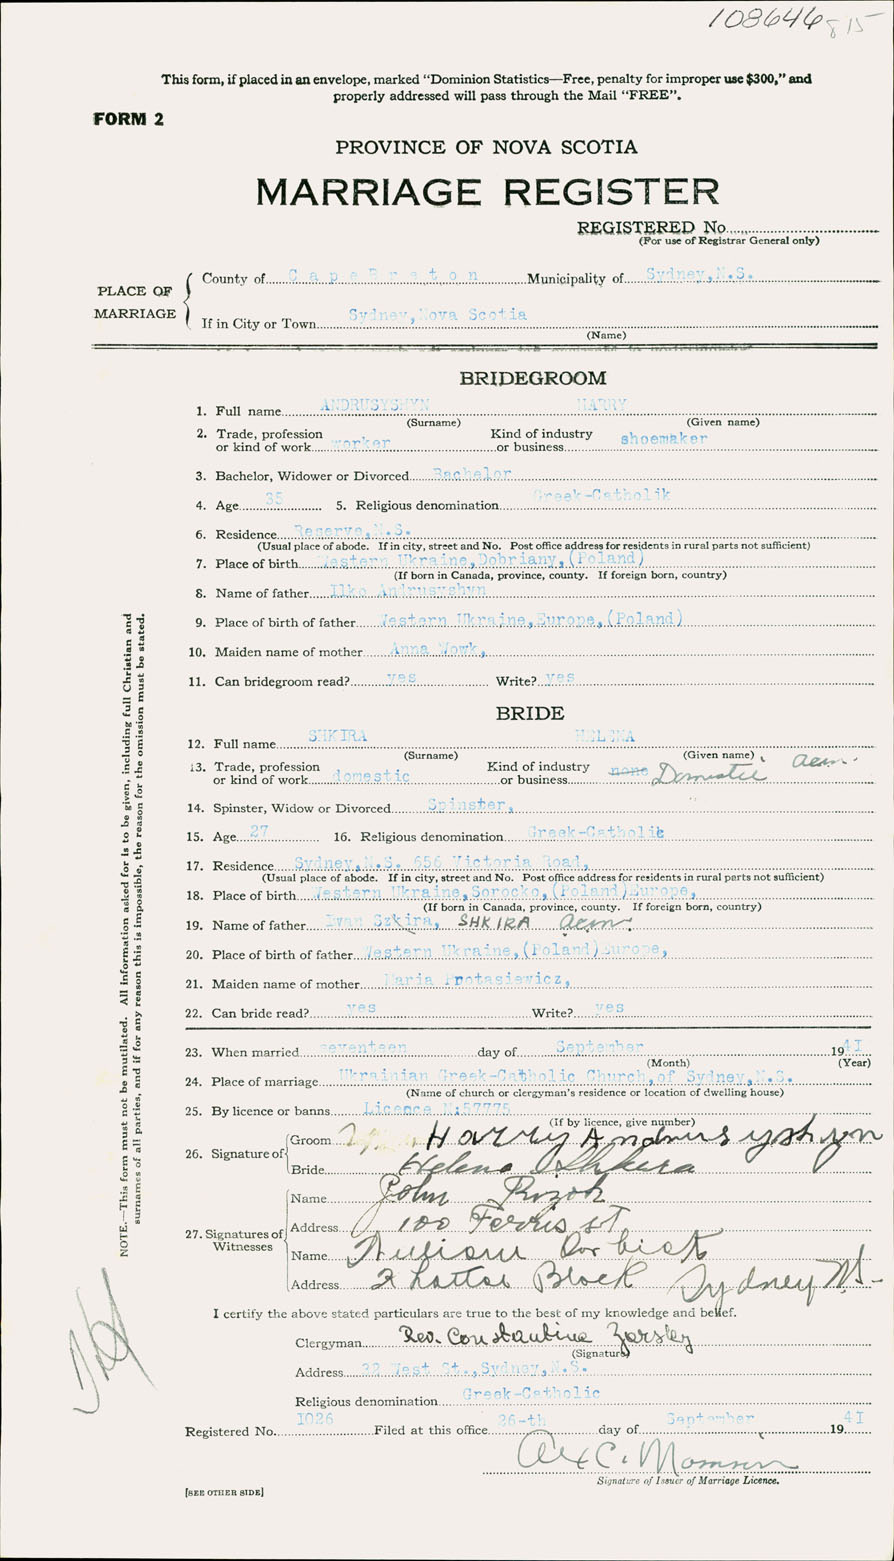 108646 815
This form, if placed in an envelope, marked “Dominion Statistics—Free, penalty for improper use $300,” and
properly addressed will pass through the Mail “FREE”.
FORM 2
PROVINCE OF NOVA SCOTIA
MARRIAGE REGISTER
REGISTERED No.
(For use of Registrar General only)
PLACE OF MARRIAGE
County of CapeBreton Municipality of Sydney,N.S.
If in City or Town Sydney,Nova Scotia
(Name)
BRIDEGROOM
1. Full name ANDRUSYSHYN HARRY
(Surname) (Given name)
2. Trade, profession or kind of work worker Kind of industry or business shoemaker
3. Bachelor, Widower or Divorced Bachelor
4. Age 35 5. Religious denomination Greek-Catholik
6. Residence Reserve,N.S.
(Usual place of abode. If in city, street and No. Post office address for residents in rural parts not sufficient)
7. Place of birth Western Ukraine,Dobriany,(Poland)
(If born in Canada, province, county. If foreign born, country)
8. Name of father Ilko Andrusyshyn
9. Place of birth of father Western Ukraine,Europe,(Poland)
10. Maiden name of mother Anna Wowk,
11. Can bridegroom read? yes Write? yes
BRIDE
12. Full name SHKIRA HELENA
(Surname) (Given name)
13. Trade, profession or kind of work domestic Kind of industry or business none Domestic acm.
14. Spinster, Widow or Divorced Spinster,
15. Age 27 16. Religious denomination Greek-Catholic
17. Residence Sydney,N.S. 656 Victoria Road,
(Usual place of abode. If in city, street and No. Post office address for residents in rural parts not sufficient)
18. Place of birth Western Ukraine,Sorocko,(Poland)Europe,
(If born in Canada, province, county. If foreign born, country)
19. Name of father Ivan Szkira, SHKIRA acm.
20. Place of birth of father Western Ukraine,(Poland)Europe,
21. Maiden name of mother Maria Protasiewicz,
22. Can bride read? yes Write? yes
23. When married seventeen day of September 1941
(Month) (Year)
24. Place of marriage Ukrainian Greek-Catholic Church,of Sydney,N.S.
(Name of church or clergyman's residence or location of dwelling house)
25. By licence or banns Licence N:57775
(If by licence, give number)
26. Signature of
Groom Harry Andrusyshyn
Bride Helena Shkira
27. Signatures of Witnesses
Name John
Address 100 Ferris st
Name
Address Block Sydney NS
I certify the above stated particulars are true to the best of my knowledge and belief.
Clergyman Rev. Constantine
(Signature)
Address 32 West St.,Sydney,N.S.
Religious denomination Greek-Catholic
Registered No. 1026 Filed at this office 26-th day of September 1941
Alex C.
Signature of Issuer of Marriage Licence.
[SEE OTHER SIDE]
NOTE.—This form must not be mutilated. All information asked for is to be given, including full Christian and
surnames of all parties, and if for any reason this is impossible, the reason for the omission must be stated.